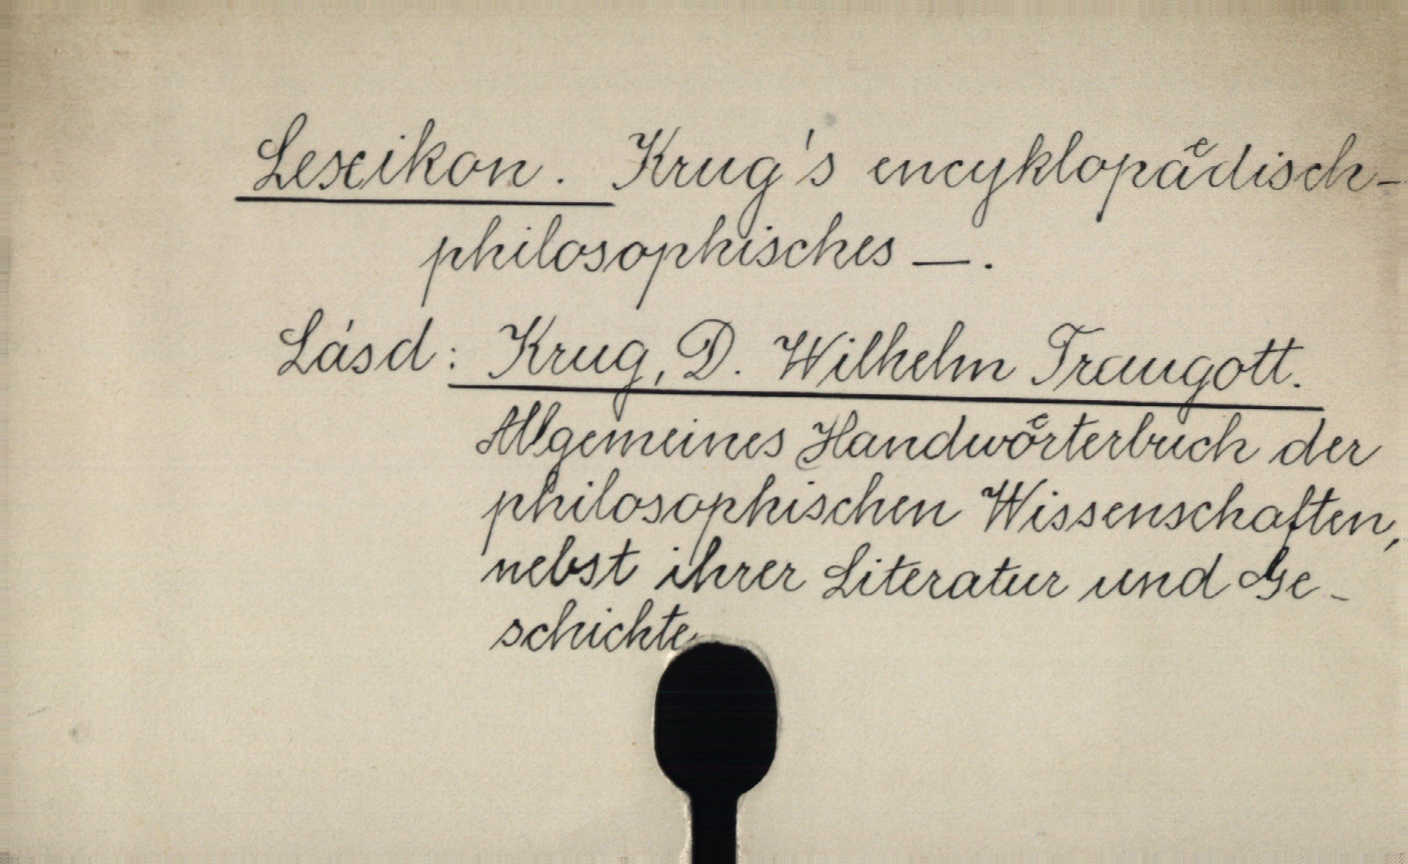 Lexikon. Krug's encyklopaͤdisch-
philosophisches —.
Lásd: Krug, D. Wilhelm Traugott.
Allgemeines Handwoͤrterbuch der
philosophischen Wissenschaften,
nebst ihrer Literatur und Ge-
schichte